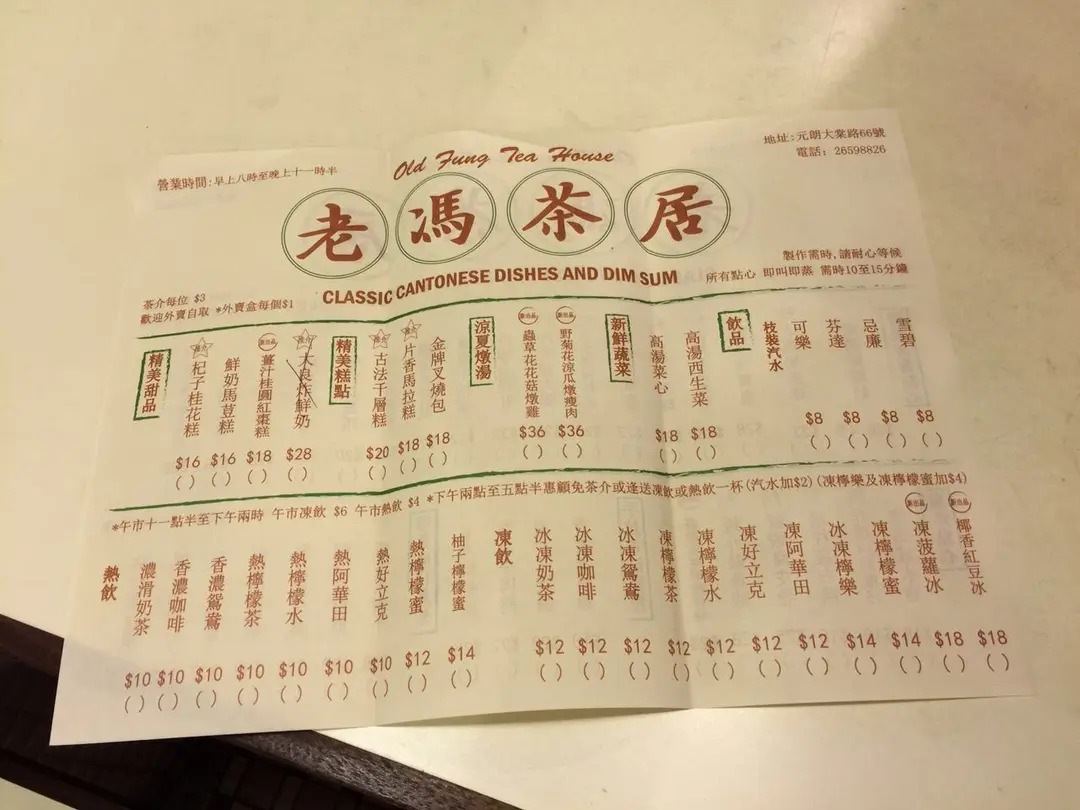 營業時間:早上八時至晚上十一時半
Old Fung Tea House
地址:元朗大棠路66號
電話:26598826
老馮茶居
CLASSIC CANTONESE DISHES AND DIM SUM
製作需時,請耐心等候
所有點心 即叫即蒸 需時10至15分鐘
茶介每位 $3
歡迎外賣自取 *外賣盒每個$1
精美甜品
推介
杞子桂花糕 $16 ( )
鮮奶馬荳糕 $16 ( )
新出品
薑汁桂圓紅棗糕 $18 ( )
推介
大良炸鮮奶 $28 ( )
精美糕點
推介
古法千層糕 $20 ( )
推介
片香馬拉糕 $18 ( )
金牌叉燒包 $18 ( )
涼夏燉湯
新出品
蟲草花花菇燉雞 $36 ( )
新出品
野菊花涼瓜燉瘦肉 $36 ( )
新鮮蔬菜
高湯菜心 $18 ( )
高湯西生菜 $18 ( )
飲品
枝裝汽水
可樂 $8 ( )
芬達 $8 ( )
忌廉 $8 ( )
雪碧 $8 ( )
*午市十一點半至下午兩時 午市凍飲 $6 午市熱飲 $4 *下午兩點至五點半惠顧免茶介或逢送凍飲或熱飲一杯(汽水加$2)(凍檸樂及凍檸檬蜜加$4)
熱飲
濃滑奶茶 $10 ( )
香濃咖啡 $10 ( )
香濃鴛鴦 $10 ( )
熱檸檬茶 $10 ( )
熱檸檬水 $10 ( )
熱阿華田 $10 ( )
熱好立克 $10 ( )
熱檸檬蜜 $12 ( )
柚子檸檬蜜 $14 ( )
凍飲
冰凍奶茶 $12 ( )
冰凍咖啡 $12 ( )
冰凍鴛鴦 $12 ( )
凍檸檬茶 $12 ( )
凍檸檬水 $12 ( )
凍好立克 $12 ( )
凍阿華田 $12 ( )
冰凍檸樂 $14 ( )
凍檸檬蜜 $14 ( )
新出品
凍菠蘿冰 $18 ( )
新出品
椰香紅豆冰 $18 ( )